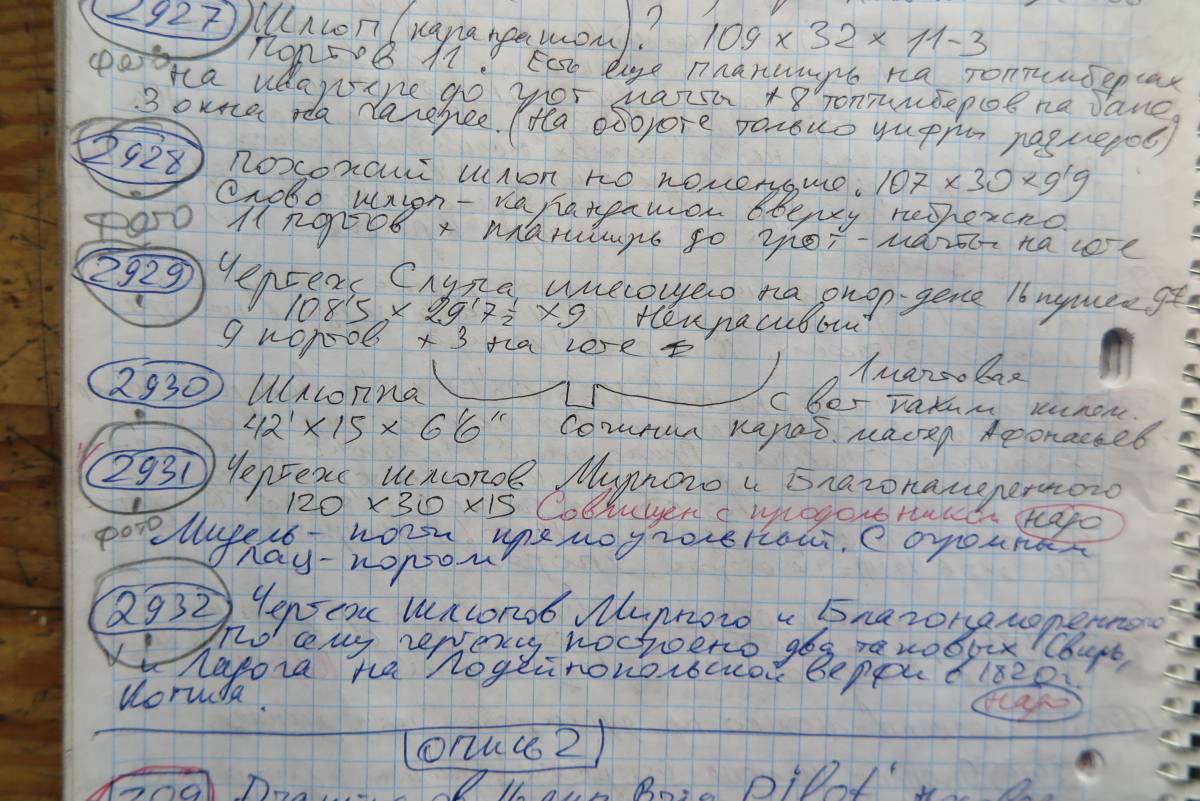 2927 Шлюп (карандашом)? 109 x 32 x 11-3
фото Портов 11. Есть еще планширь на топтимберсах
на квартере до грот мачты +8 топтимберов на баке
3 окна на галерее. (На обороте только цифры размеров)
2928 похожий шлюп но поменьше. 107 x 30 x 9'9
Слово шлюп - карандашом вверху небрежно.
фото 11 портов + планширь до грот-мачты на юте
2929 Чертеж Слупа имеющего на опор-деке 16 пушек
108'5 x 29'7½ x 9 Некрасивый
9 портов + 3 на юте
2930 Шлюпка 1 мачтовая
с вот таким килем.
42' x 15 x 6'6" Сочинил караб. мастер Афонасьев
2931 Чертеж шлюпов Мирного и Благонамеренного
120 x 30 x 15 Совмещен с продольником надо
фото Мидель - почти прямоугольный. С огромным
лац-портом
2932 Чертеж шлюпов Мирного и Благонамеренного
По сему чертежу построено два таковых Свирь,
и Ладога на Лодейнопольской верфи в 1820г.
Копия. надо
опись 2
209